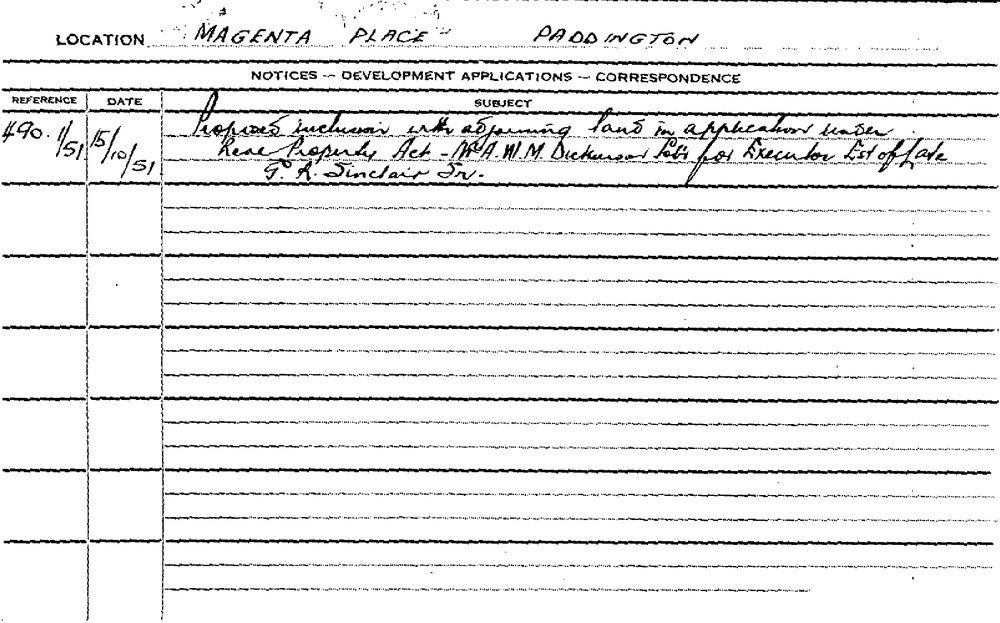 LOCATION MAGENTA PLACE PADDINGTON
NOTICES - DEVELOPMENT APPLICATIONS - CORRESPONDENCE
REFERENCE DATE SUBJECT
490. 1/51 15/10/51 Proposed inclusion with adjoining land in application under
Real Property Act - A.W.M. Dickinson for Executor Est of Late
G. R. Sinclair